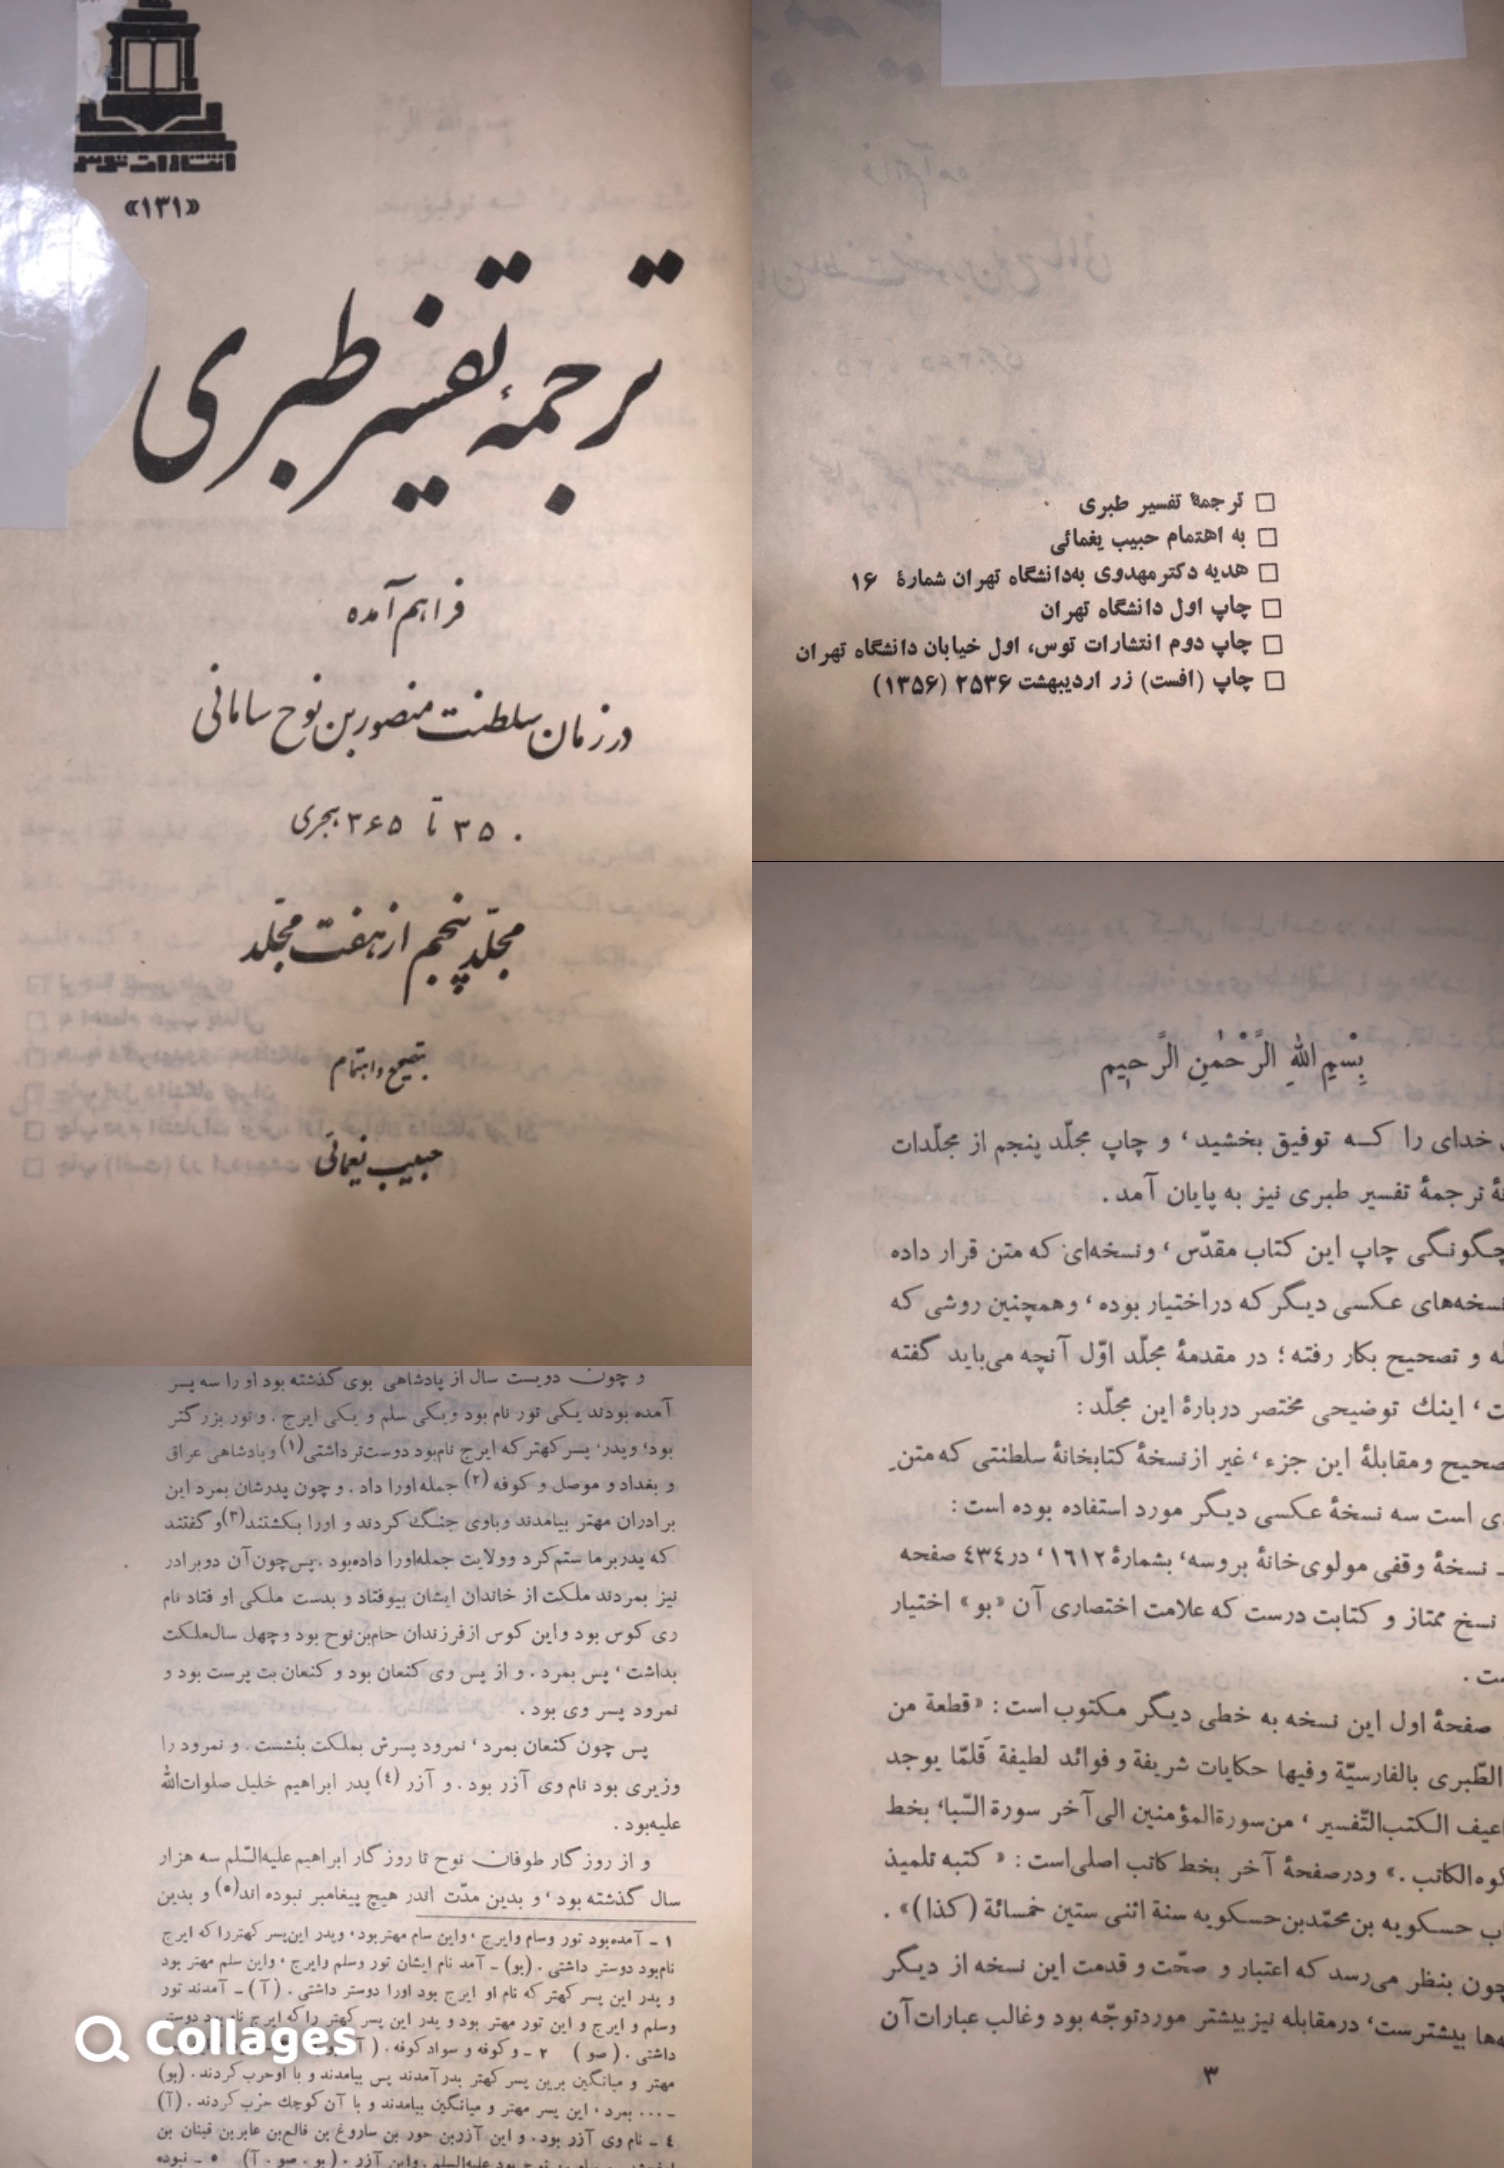 انتشارات توس
«۱۳۱»
ترجمهٔ تفسیر طبری
فراهم آمده
در زمان سلطنت منصور بن نوح سامانی
۳۵۰ تا ۳۶۵ هجری
مجلّد پنجم از هفت مجلّد
بتصحیح و اهتمام
حبیب یغمائی
□ ترجمهٔ تفسیر طبری
□ به اهتمام حبیب یغمائی
□ هدیه دکتر مهدوی به‌دانشگاه تهران شمارهٔ ۱۶
□ چاپ اول دانشگاه تهران
□ چاپ دوم انتشارات توس، اول خیابان دانشگاه تهران
□ چاپ (افست) زر اردیبهشت ۲۵۳۶ (۱۳۵۶)
بِسْمِ اللهِ الرَّحْمٰنِ الرَّحیٖمِ
خدای را کــه توفیق بخشید، و چاپ مجلّد پنجم از مجلّدات
ترجمهٔ تفسیر طبری نیز به پایان آمد.
چگونگی چاپ این کتاب مقدّس، و نسخه‌ای که متن قرار داده
نسخه‌های عکسی دیگر که در اختیار بوده، و همچنین روشی که
و تصحیح بکار رفته؛ در مقدمهٔ مجلّد اوّل آنچه می‌باید گفته
، اینك توضیحی مختصر دربارهٔ این مجلّد:
صحیح و مقابلهٔ این جزء، غیر از نسخهٔ کتابخانهٔ سلطنتی که متنِ
است سه نسخهٔ عکسی دیگر مورد استفاده بوده است:
ـ نسخهٔ وقفی مولوی‌خانهٔ بروسه، بشمارهٔ ١٦١٢، در ٤٣٤ صفحه
نسخ ممتاز و کتابت درست که علامت اختصاری آن «بو» اختیار
ست.
صفحهٔ اول این نسخه به خطی دیگر مکتوب است: «قطعة من
الطّبری بالفارسیّة وفیها حکایات شریفة و فوائد لطیفة قَلمّا یوجد
اعیف الکتب‌التّفسیر، من‌سورةالمؤمنین الی آخر سورة السّبا، بخط
الکاتب.» و در صفحهٔ آخر بخط کاتب اصلی است: «کتبه تلمیذ
حسکویه بن محمّد بن حسکویه سنة اثنی ستین خمسائة (کذا)».
چون بنظر می‌رسد که اعتبار و صحّت و قدمت این نسخه از دیگر
ه‌ها بیشترست، در مقابله نیز بیشتر مورد توجّه بود و غالب عبارات آن
٣
و چون دویست سال از پادشاهی بوی گذشته بود او را سه پسر
آمده بودند یکی تور نام بود و یکی سلم و یکی ایرج. و تور بزرگتر
بود، و پدر، پسر کهتر که ایرج نام‌بود دوست‌تر داشتی(١) و پادشاهی عراق
و بغداد و موصل و کوفه (٢) جمله او را داد. و چون پدرشان بمرد این
برادران مهتر بیامدند و باوی جنگ کردند و او را بکشتند(٣) و گفتند
که پدر بر ما ستم کرد و ولایت جمله‌اورا داده‌بود. پس‌چون آن دوبرادر
نیز بمردند ملکت از خاندان ایشان بیوفتاد و بدست ملکی او فتاد نام
ری کوس بود و این کوس از فرزندان حام‌بن‌نوح بود و چهل سال‌ملکت
بداشت، پس بمرد. و از پس وی کنعان بود و کنعان بت پرست بود و
نمرود پسر وی بود.
پس چون کنعان بمرد، نمرود پسرش بملکت بنشست. و نمرود را
وزیری بود نام وی آزر بود. و آزر (٤) پدر ابراهیم خلیل صلوات‌الله
علیه‌بود.
و از روز گار طوفان نوح تا روز گار ابراهیم علیه‌السّلم سه هزار
سال گذشته بود، و بدین مدّت اندر هیچ پیغامبر نبوده اند(٥) و بدین
١ ـ آمده بود تور وسام وایرج، واین سام مهتر بود، و پدر این‌پسر کهتر را که ایرج
نام‌بود دوستر داشتی. (بو) ـ آمد نام ایشان تور وسلم وایرج، و این سلم مهتر بود
و پدر این پسر کهتر که نام او ایرج بود اورا دوستر داشتی. (آ) ـ آمدند تور
وسلم و ایرج و این تور مهتر بود و پدر این پسر کهتر را که ایرج نام بود دوستر
داشتی. (صو) ٢ ـ و کوفه و سواد کوفه.
مهتر و میانگین برین پسر کهتر بدر آمدند پس بیامدند و با او حرب کردند. (بو)
ـ ... بمرد، این پسر مهتر و میانگین بیامدند و با آن کوچك حرْب کردند. (آ)
٤ ـ نام وی آزر بود. و این آزربن حور بن ساروغ بن فالغ‌بن عابربن قینان بن
نوح بود علیه‌السلم. واین آزر. (بو. صو. آ) ٥ ـ نبوده
Collages